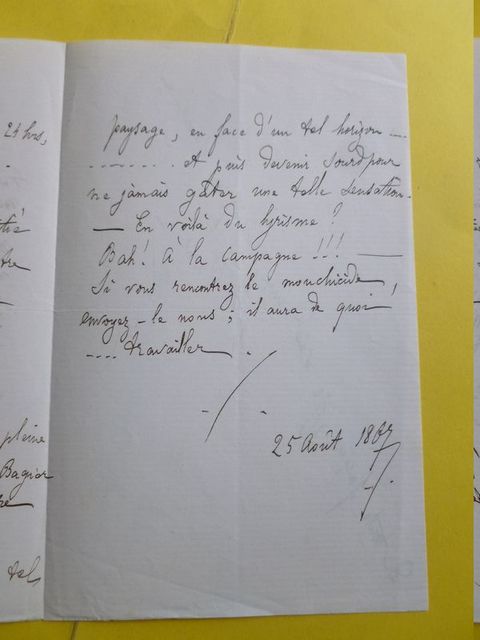 24 hrs,
pleine
Bagier
tel
paysage, en face d'un tel horizon ....
........ et puis devenir sourd pour
ne jamais gâter une telle sensation.
— En voilà du lyrisme !
Bah! à la campagne !!! —
Si vous rencontrez le mouchicide,
envoyez-le nous ; il aura de quoi
.... travailler .
25 Août